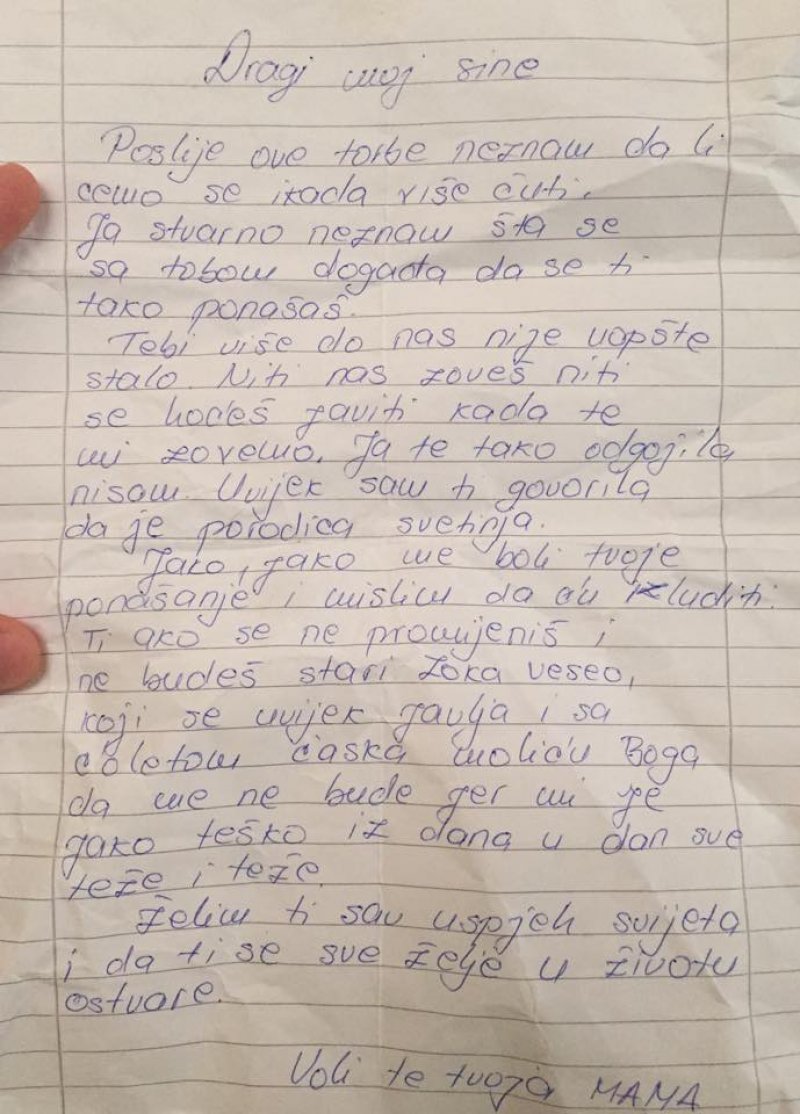 Dragi moj sine
Poslije ove torbe neznam da li
cemo se ikada više čuti.
Ja stvarno neznam šta se
sa tobom događa da se ti
tako ponašaš.
Tebi više do nas nije uopšte
stalo. Niti nas zoveš niti
se hoćeš javiti kada te
mi zovemo. Ja te tako odgojila
nisam. Uvijek sam ti govorila
da je porodica svetinja.
Jako, jako me boli tvoje
ponašanje i mislim da ću izluditi.
Ti ako se ne promijeniš i
ne budeš stari Zoka veseo,
koji se uvijek javlja i sa
ćaska moliću Boga
da me ne bude jer mi je
jako teško iz dana u dan sve
teže i teže.
Želim ti sav uspjeh svijeta
i da ti se sve želje u životu
ostvare.
Voli te tvoja MAMA